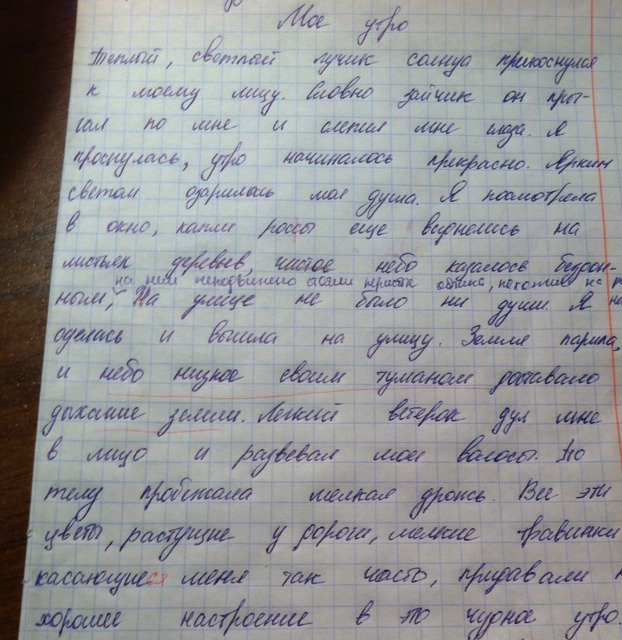 Мое утро
Теплый, светлый лучик солнца прикоснулся
к моему лицу. Словно зайчик он пры-
гал по мне и слепил мне глаза. Я
проснулась, утро начиналось прекрасно. Ярким
светом озарилась моя душа. Я посмотрела
в окно, капли россы еще виднелись на
листьях деревьев, чистое небо казалось бездон-
на нем неподвижно стояли перистые облака, похожие на
ным, На улице не было ни души. Я
оделась и вышла на улицу. Земля парила,
и небо нищное своим туманом доставало
дыхание земли. Легкий ветерок дул мне
в лицо и развевал мои волосы. По
телу пробежала мелкая дрожь. Все эти
цветы, растущие у дороги, мелкие травинки
касающиеся меня так часто, придавали
хорошее настроение в то чудное утро.